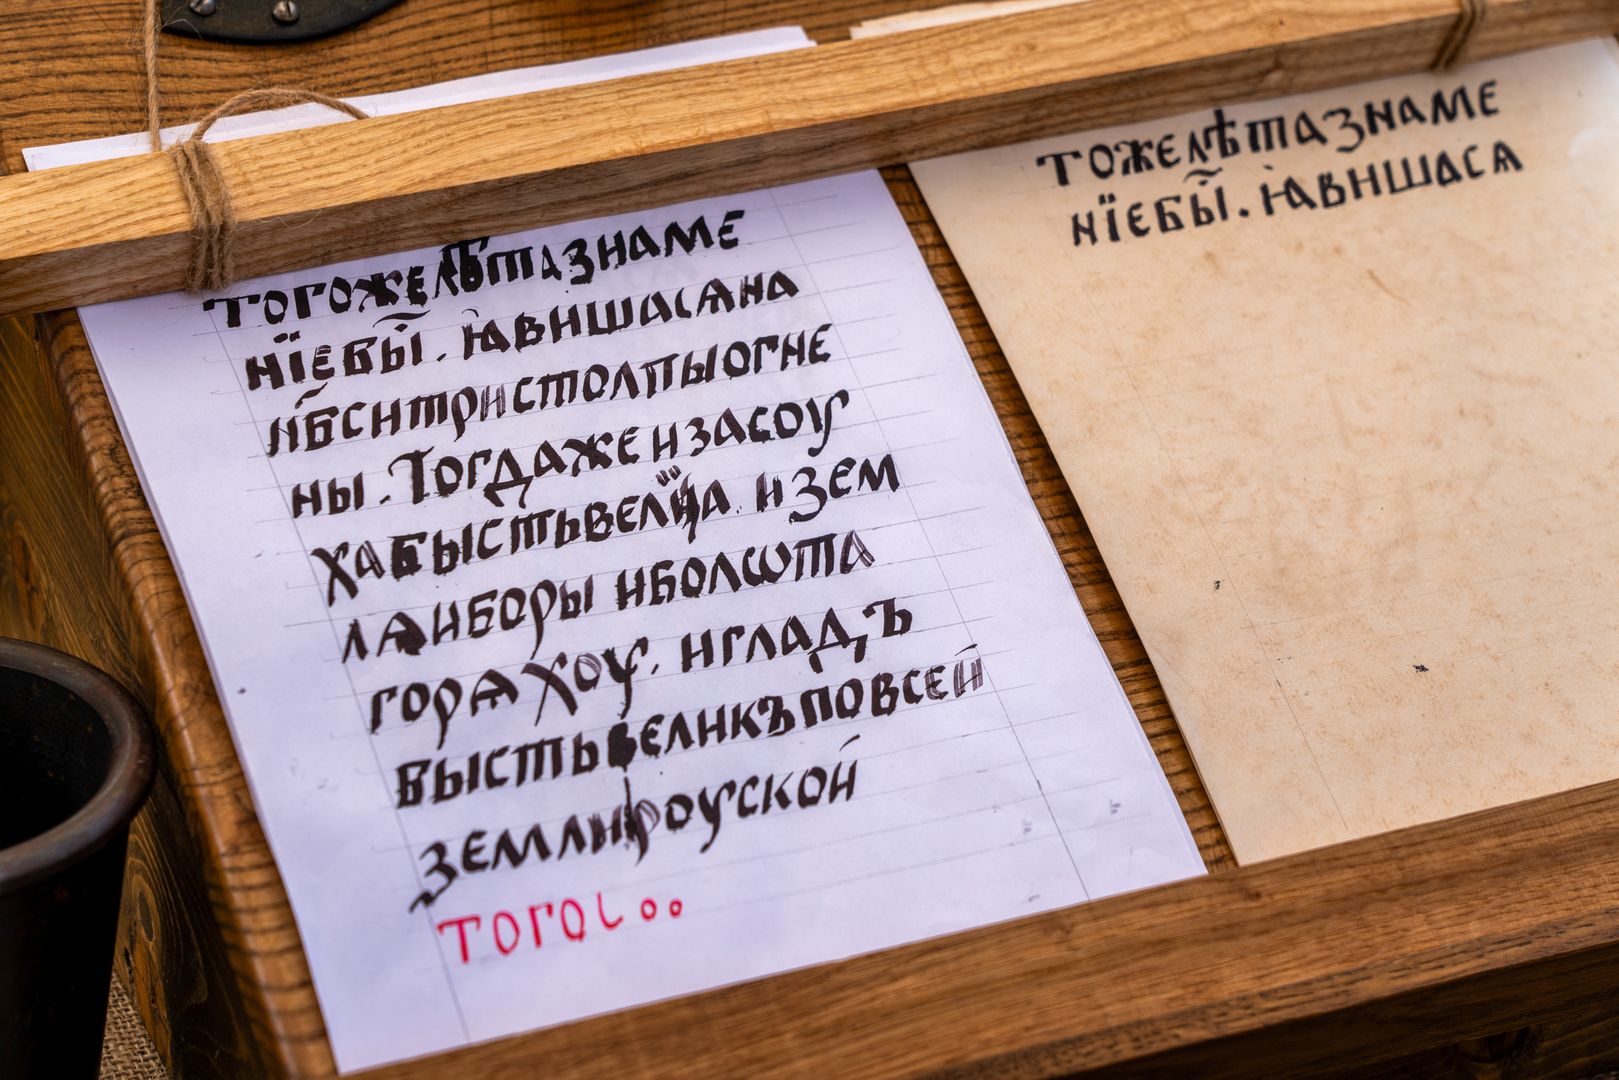 тогожелѣтазнаме
нїебы̃. ꙗвишасѧна
нб҃ситристолпыогне
ны. Тогдажеизасоу
хабыстьвелїка. изем
лѧиборы иболѡта
горѧхоу. игладъ
бystьвеликъповсей
землироуской
того...
тожелѣтазнаме
нїебы̃. ꙗвишасѧ